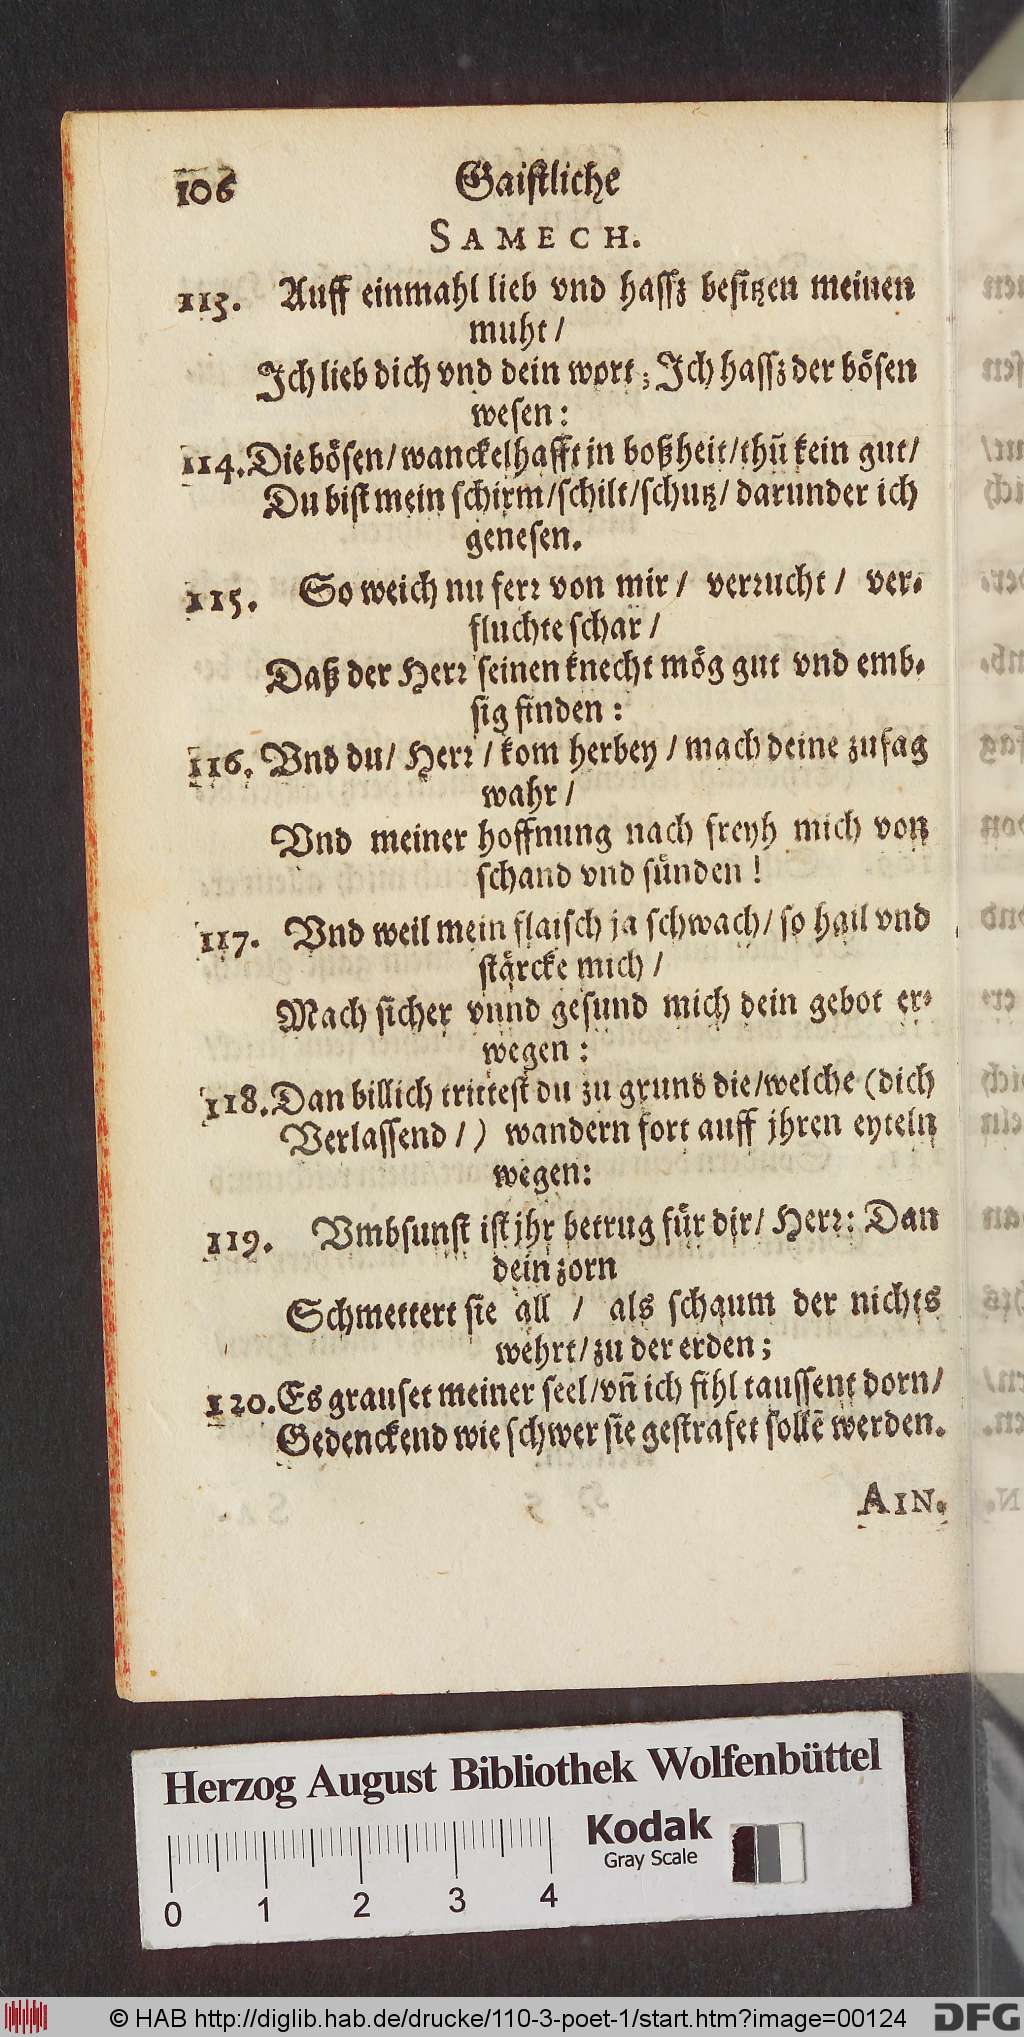 106 Gaistliche
SAMECH.
113. Auff einmahl lieb vnd hassz besitzen meinen
muht /
Ich lieb dich vnd dein wort ; Ich hassz der bösen
wesen :
114. Die bösen / wanckelhafft in boßheit / thũ kein gut /
Du bist mein schirm / schilt / schutz / darunder ich
genesen.
115. So weich nu ferr von mir / verrucht / ver-
fluchte schar /
Daß der Herr seinen knecht mög gut vnd emb-
sig finden :
116. Vnd du / Herr / kom herbey / mach deine zusag
wahr /
Vnd meiner hoffnung nach freyh mich von
schand vnd sünden !
117. Vnd weil mein flaisch ja schwach / so hail vnd
stärcke mich /
Mach sicher vnnd gesund mich dein gebot er-
wegen :
118. Dan billich trittest du zu grund die / welche (dich
Verlassend / ) wandern fort auff jhren eyteln
wegen:
119. Vmbsunst ist jhr betrug für dir / Herr: Dan
dein zorn
Schmettert sie all / als schaum der nichts
wehrt / zu der erden ;
120. Es grauset meiner seel / vñ ich fihl taussent dorn /
Gedenckend wie schwer sie gestrafet sollẽ werden.
AIN.
Herzog August Bibliothek Wolfenbüttel
Kodak
Gray Scale
0 1 2 3 4
© HAB http://diglib.hab.de/drucke/110-3-poet-1/start.htm?image=00124
DFG